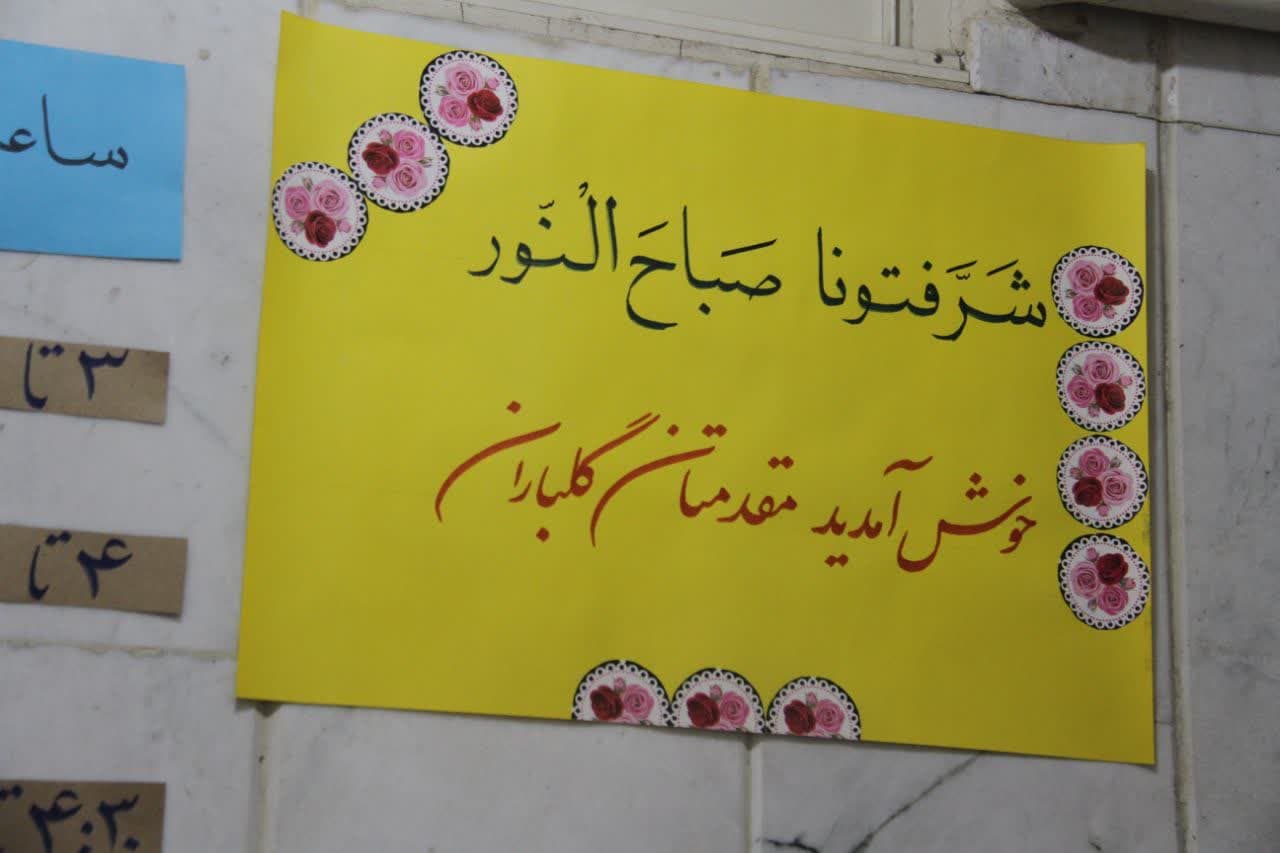 شَرَّفتونا صَباحَ النّور
خوش آمدید مقدمتان گلباران
ساع
۳ تا
۴ تا
۴:۳۰ تا